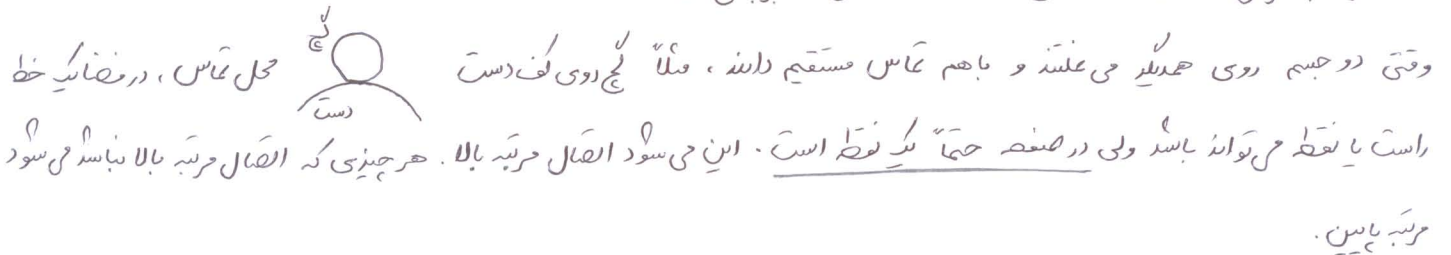 وقتی دو جسم روی همدیگر می غلتند و باهم تماس مستقیم دارند ، مثلاً گچ روی کف دست گچ دست محل تماس ، در فضا یک خط
راست یا نقطه می تواند باشد ولی در صفحه حتماً یک نقطه است . این می شود اتصال مرتبه بالا . هر چیزی که اتصال مرتبه بالا نباشد می شود
مرتبه پایین .